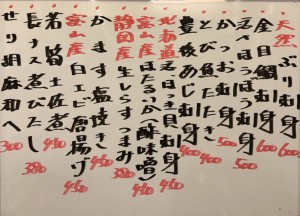 天然 ぶり刺身 600
金目鯛刺身 600
活〆ほうぼう刺身 500
かつお刺身 500
とび魚たたき 400
豊後あじ刺身 400
北海道 活ほっき貝刺身
富山産 ほたるいか(酢味噌)
静岡産 生しらすつまみ 380
かます塩焼き 480
富山産 白エビ唐揚げ 450
若筍土佐煮 480
長ナス煮びたし 380
せり胡麻和へ 300